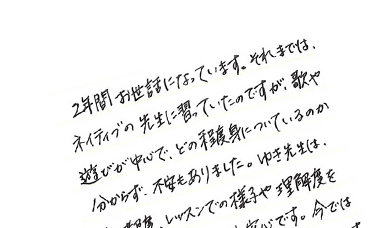 2年間お世話になっています。それまでは、
ネイティブの先生に習っていたのですが、歌や
遊びが中心で、どの程度身についているのか
分からず、不安もありました。ゆき先生は、
レッスンでの様子や理解度を
心です。今では